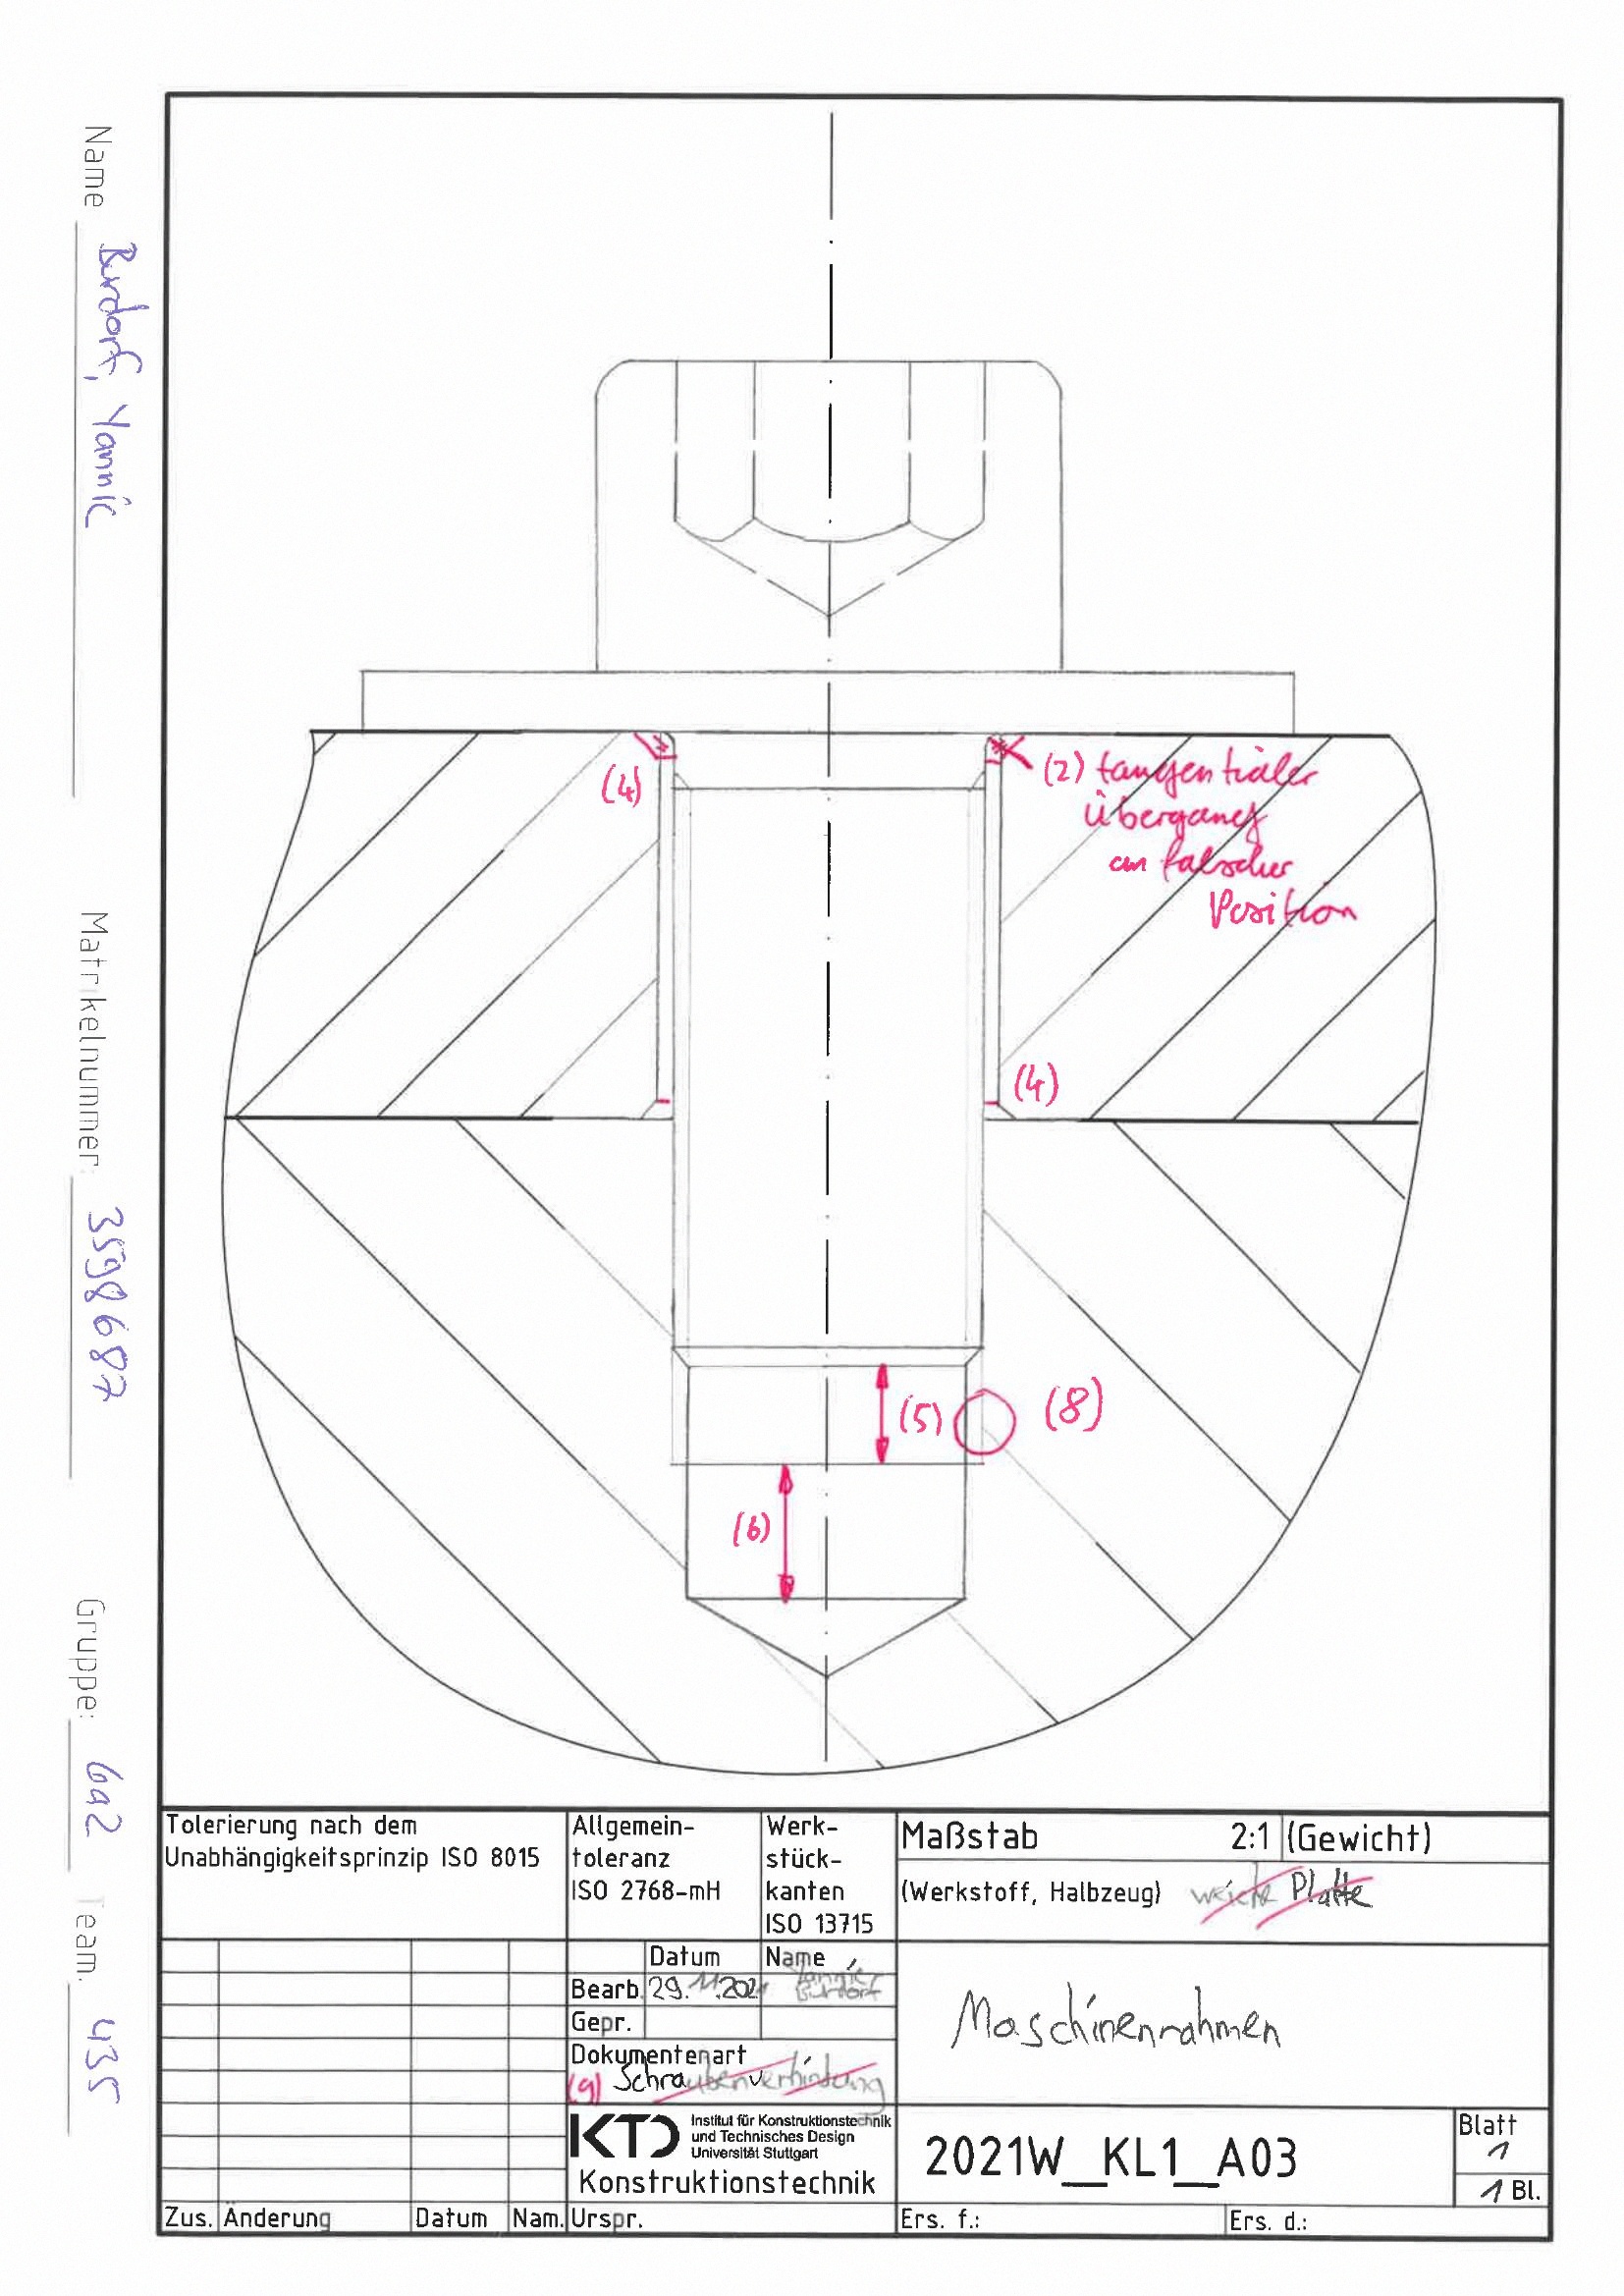 Name Burdorf, Yannic
Matrikelnummer: 3598687
Gruppe: 6a2
Team: 435
(4)
(2) tangentialer
Übergang
an falscher
Position
(4)
(5)
(8)
(6)
Tolerierung nach dem
Unabhängigkeitsprinzip ISO 8015
Allgemein-
toleranz
ISO 2768-mH
Werk-
stück-
kanten
ISO 13715
Maßstab 2:1 (Gewicht)
(Werkstoff, Halbzeug) weiche Platte
Datum Name
Bearb. 29.11.2021 Yannic
Burdorf
Gepr.
Dokumentenart
(9) Schraubenverbindung
Maschinenrahmen
KTD Institut für Konstruktionstechnik
und Technisches Design
Universität Stuttgart
Konstruktionstechnik
2021W_KL1_A03
Blatt
1
1 Bl.
Zus. Änderung Datum Nam. Urspr. Ers. f.: Ers. d.: